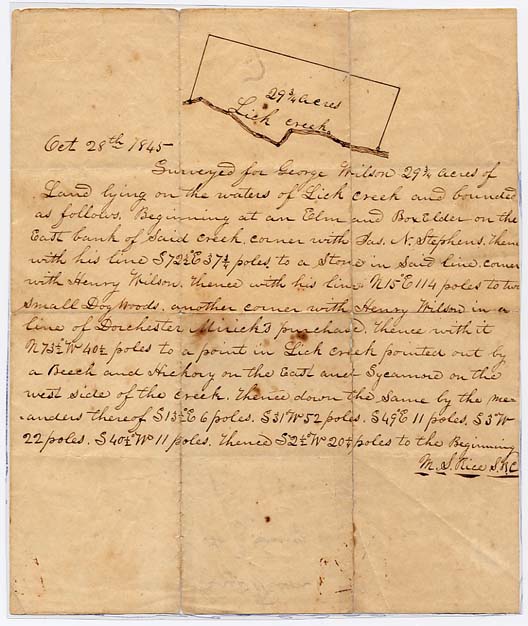 29¾ acres
Lick creek
Oct 28th 1845
Surveyed for George Wilson 29¾ acres of
Land lying on the waters of Lick creek and bounded
as follows. Beginning at an Elm and Box Elder on the
East bank of Said creek. corner with Jas. N. Stephens. thence
with his line S72½°E 37¼ poles to a Stone in Said line. corner
with Henry Wilson. thence with his line N15°E 114 poles to two
Small Dog Woods. another corner with Henry Wilson in a
line of Dorchester Mirick's purchase. thence with it
N73½°W 40½ poles to a point in Lick creek pointed out by
a Beech and Hickory on the East and Sycamore on the
west side of the creek. thence down the same by the me-
anders thereof S13½°E 6 poles. S31°W 52 poles. S49°E 11 poles. S3°W
22 poles. S40½°W 11 poles. thence S2½°W 20½ poles to the Beginning
M. S. Rice S.